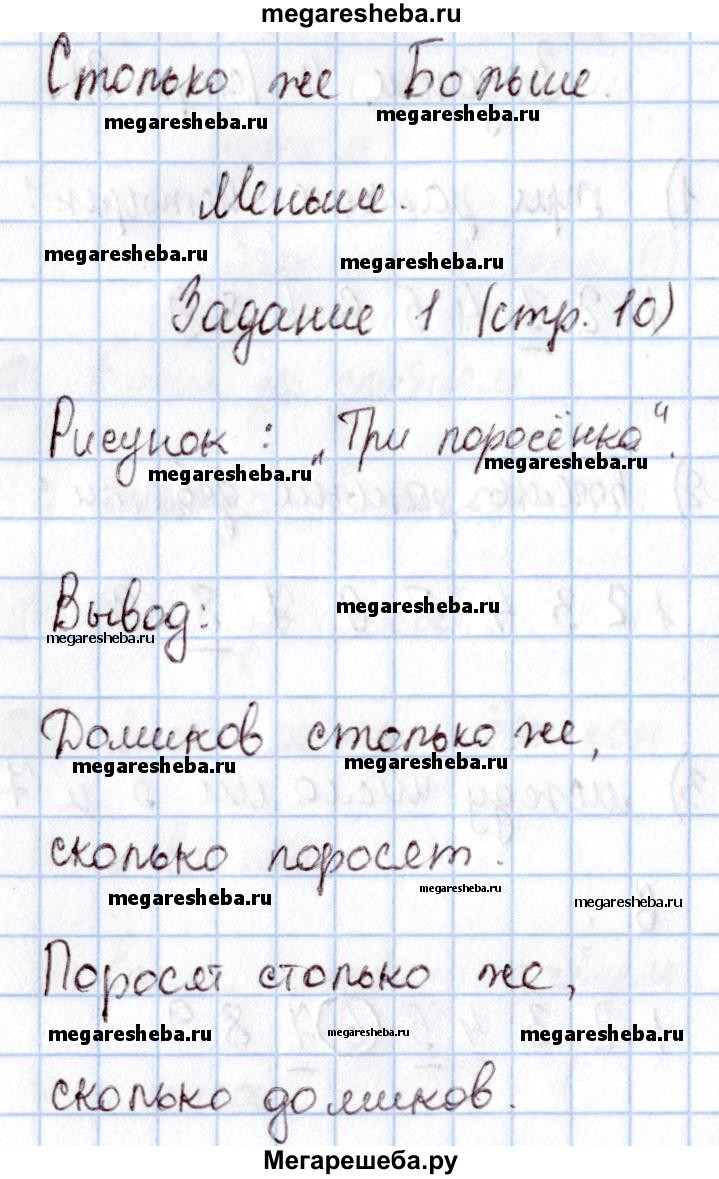 megaresheba.ru
Столько же. Больше.
megaresheba.ru megaresheba.ru
Меньше.
megaresheba.ru megaresheba.ru
Задание 1 (стр. 10)
Рисунок: „Три поросёнка“.
megaresheba.ru megaresheba.ru
Вывод: megaresheba.ru
megaresheba.ru
Домиков столько же,
megaresheba.ru megaresheba.ru
сколько поросят.
megaresheba.ru megaresheba.ru megaresheba.ru
Поросят столько же,
megaresheba.ru megaresheba.ru megaresheba.ru
сколько домиков.
Мегарешеба.ру